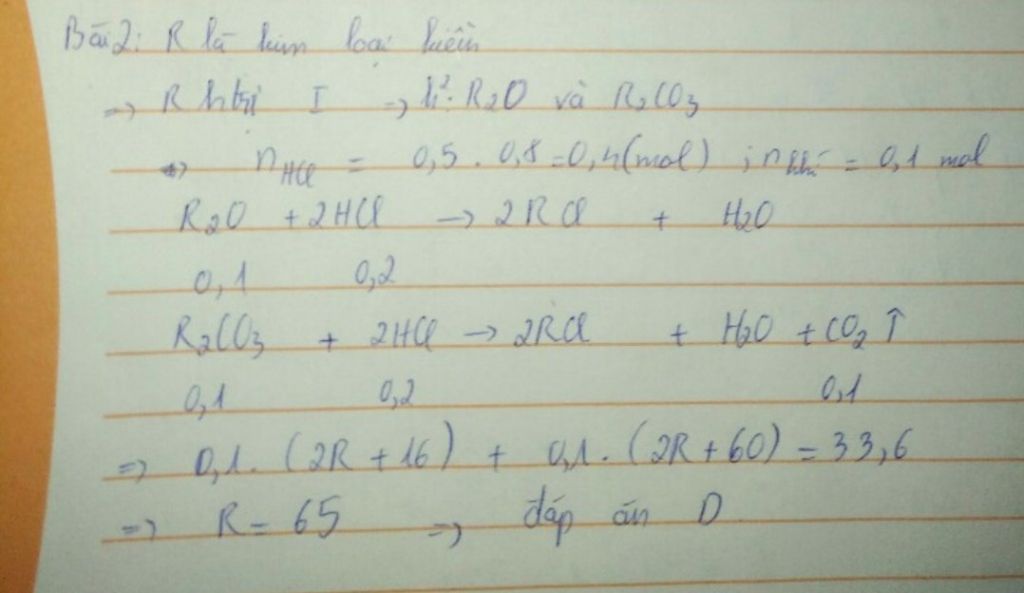 Bài 2: R là kim loại kiềm
=> R htrị I -> h²: R₂O và R₂CO₃
=> nHCl = 0,5 . 0,8 = 0,4 (mol) ; nkhí = 0,1 mol
R₂O + 2HCl -> 2RCl + H₂O
0,1 0,2
R₂CO₃ + 2HCl -> 2RCl + H₂O + CO₂ ↑
0,1 0,2 0,1
=> 0,1. (2R + 16) + 0,1. (2R + 60) = 33,6
=> R = 65 -> đáp án D